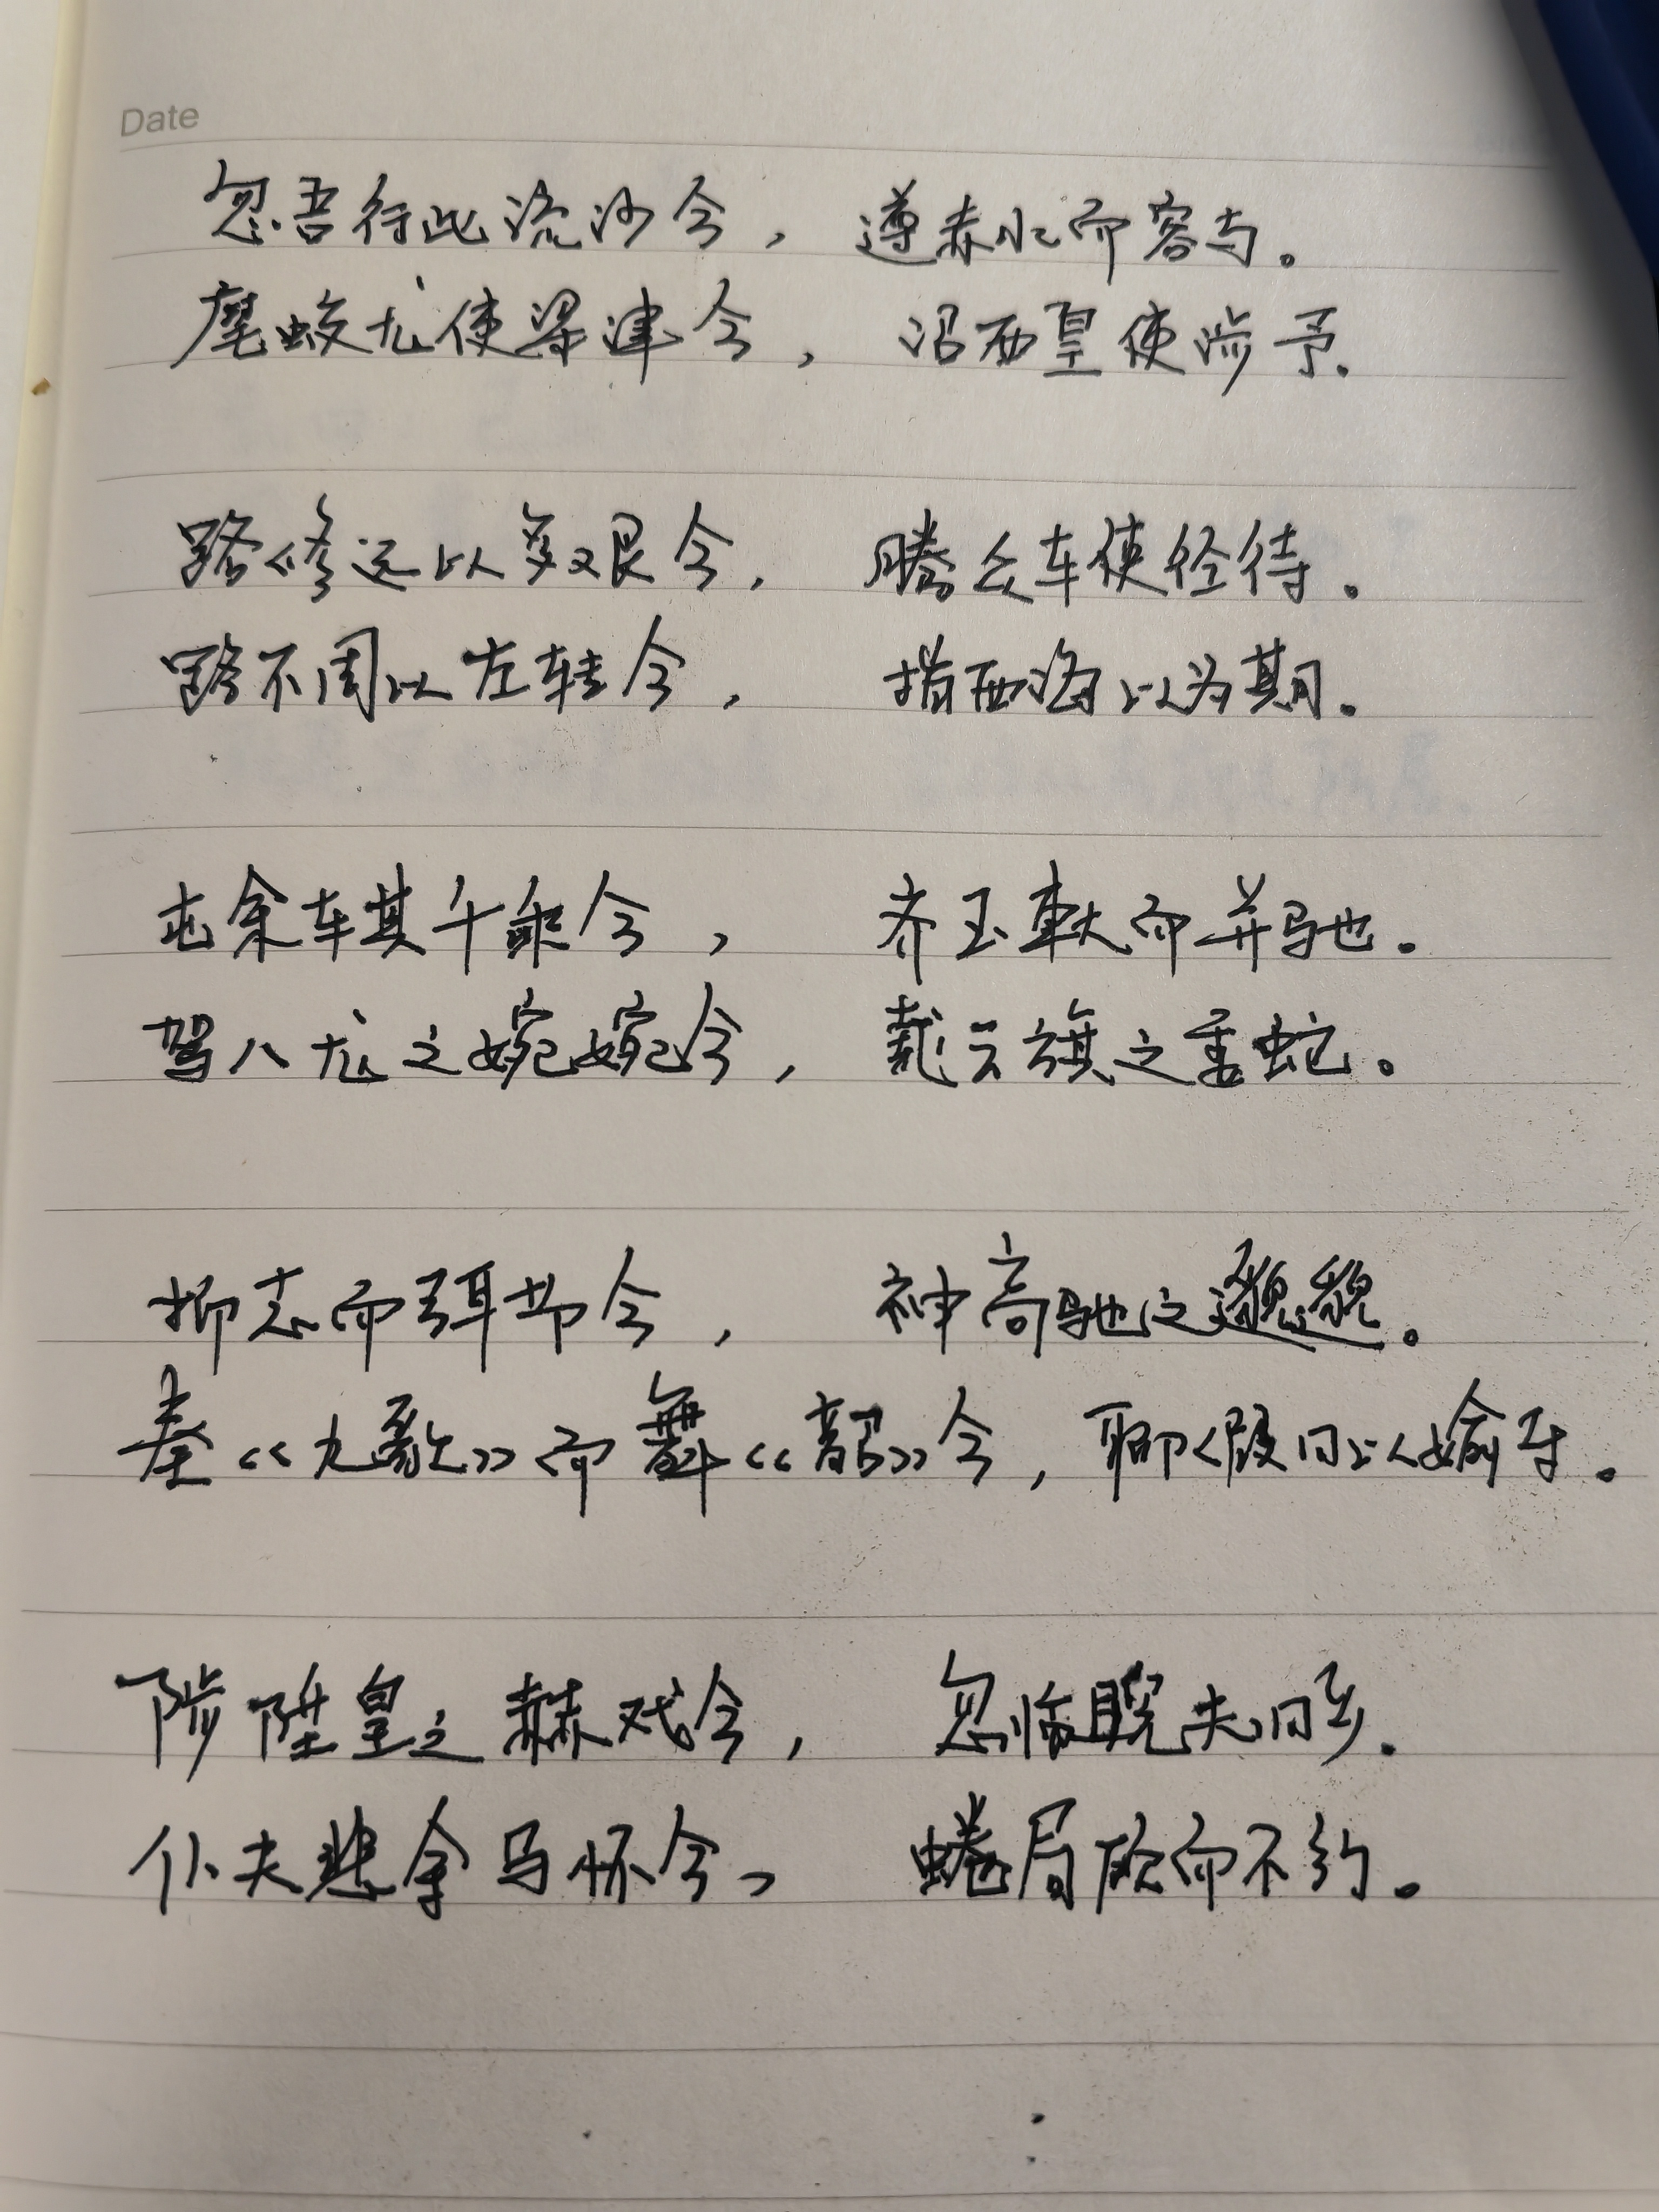 Date
忽吾行此流沙兮，遵赤水而容与。
麾蛟龙使梁津兮，诏西皇使涉予。
路修远以多艰兮，腾众车使径待。
路不周以左转兮，指西海以为期。
屯余车其千乘兮，齐玉轪而并驰。
驾八龙之婉婉兮，载云旗之委蛇。
抑志而弭节兮，神高驰之邈邈。
奏《九歌》而舞《韶》兮，聊假日以媮乐。
陟陞皇之赫戏兮，忽临睨夫旧乡。
仆夫悲余马怀兮，蜷局顾而不行。